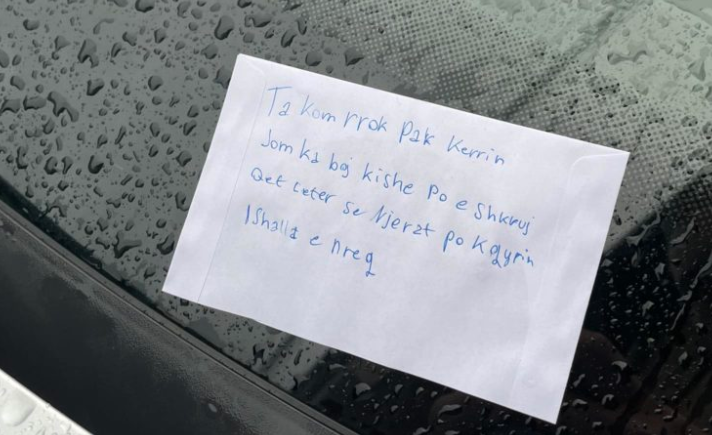 Ta kom rrok pak kerrin
Jom ka boj kishe po e shkruj
Qet leter se Njerzt po kqyrin
IShalla e nreq